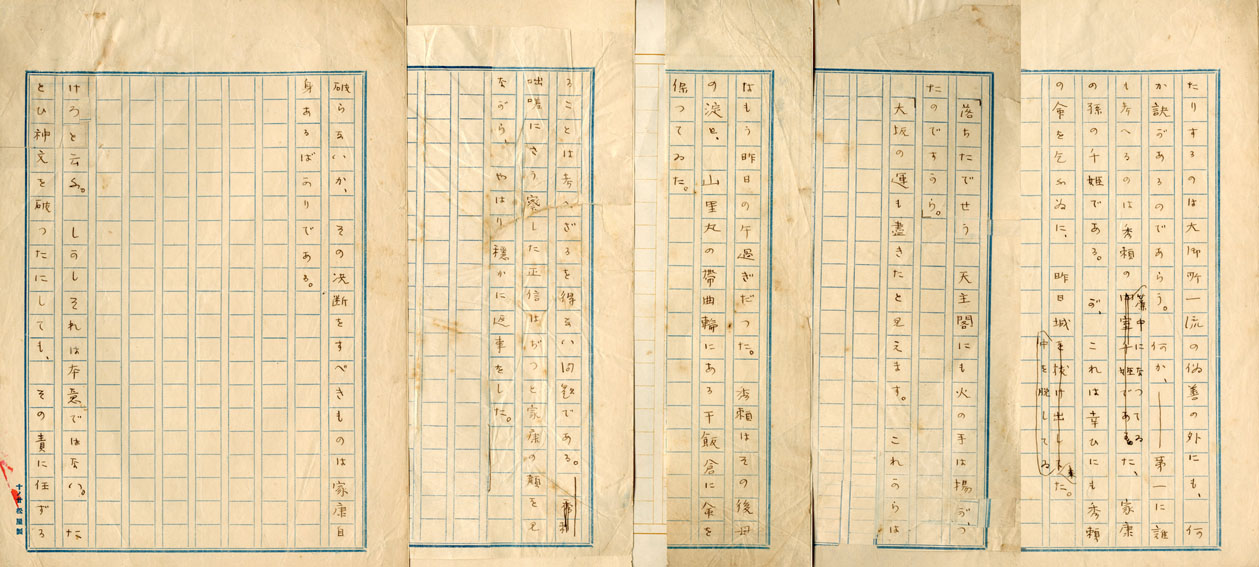 たりするのは大御所一流の偽善の外にも、何
か訣があるのであらう。何か、――第一に誰
も考へるのは秀頼の御室千姫である。た、家康
簾中になつてゐる
の孫の千姫である。が、これは幸ひにも秀頼
の命を乞ふ為に、昨日城を抜け出した。
中を脱してゐ
「落ちたでせう 天主閣にも火の手は揚がつ
たのですから。」
「大坂の運も盡きたと見えます。これからは
はもう昨日の午過ぎだつた。秀頼はその後母
の淀君、山里丸の帶曲輪にある干飯倉に命を
保つてゐた。
ることは考へざるを得ない問題である。
咄嗟にかう察した正信はぢつと家康の顔を見
ながら、やはり穏かに返事をした。
破らないか、その決断をすべきものは家康自
身あるばかりである。
けろと云ふ。しかしそれは本意ではない。た
とひ神文を破つたにしても、その責に任ずる
十ノ廿 松屋製